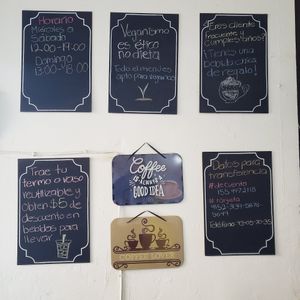 Horario
Miércoles a
Sábado
12:00-19:00
Domingo
13:00-18:00
Veganismo
es ético
no dieta
Todo el menú es
apto para veganos
¿Eres cliente
frecuente y
cumples años?
¡Tienes una
bebida
de regalo!
Trae tu
termo o vaso
reutilizable y
obtén $5 de
descuento en
bebidas para
llevar
Coffee
ALWAYS A
GOOD IDEA
Datos para
transferencia
# de cuenta
# tarjeta
Teléfono